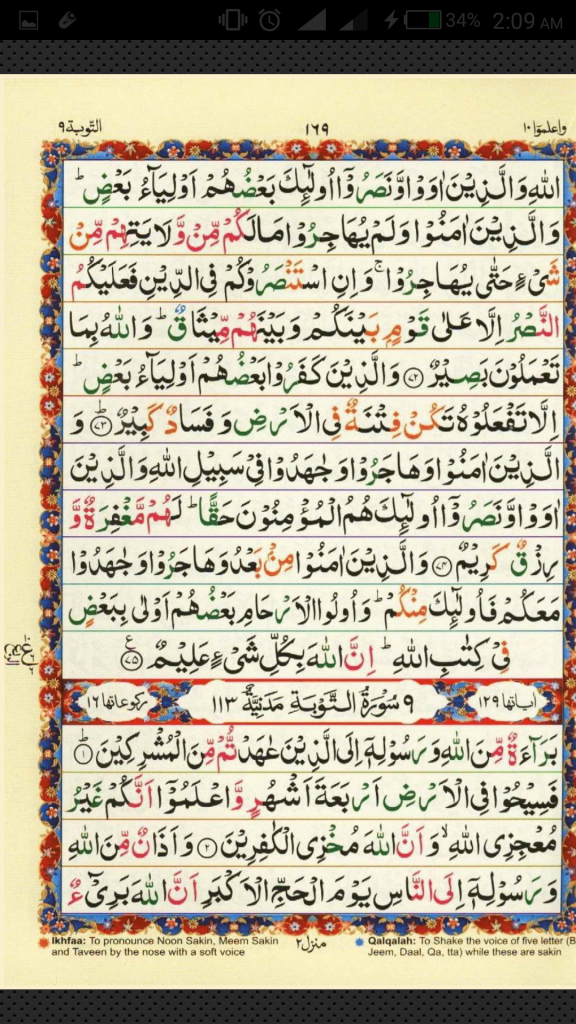 34% 2:09 AM
واعلموٓا ١٠ ١٦٩ التّوبة ٩
اللهِ وَالَّذِيْنَ اٰوَوْا وَّنَصَرُوْٓا اُولٰٓئِكَ بَعْضُهُمْ اَوْلِيَآءُ بَعْضٍ ؕ
وَالَّذِيْنَ اٰمَنُوْا وَلَمْ يُهَاجِرُوْا مَا لَكُمْ مِّنْ وَّلَايَتِهِمْ مِّنْ
شَىْءٍ حَتّٰى يُهَاجِرُوْا ۚ وَاِنِ اسْتَنْصَرُوْكُمْ فِى الدِّيْنِ فَعَلَيْكُمُ
النَّصْرُ اِلَّا عَلٰى قَوْمٍۢ بَيْنَكُمْ وَبَيْنَهُمْ مِّيْثَاقٌ ؕ وَاللهُ بِمَا
تَعْمَلُوْنَ بَصِيْرٌ ﴿۷۲﴾ وَالَّذِيْنَ كَفَرُوْا بَعْضُهُمْ اَوْلِيَآءُ بَعْضٍ ؕ
اِلَّا تَفْعَلُوْهُ تَكُنْ فِتْنَةٌ فِى الْاَرْضِ وَفَسَادٌ كَبِيْرٌ ﴿۷۳﴾ؕ وَ
الَّذِيْنَ اٰمَنُوْا وَهَاجَرُوْا وَجٰهَدُوْا فِىْ سَبِيْلِ اللهِ وَالَّذِيْنَ
اٰوَوْا وَّنَصَرُوْٓا اُولٰٓئِكَ هُمُ الْمُؤْمِنُوْنَ حَقًّا ؕ لَهُمْ مَّغْفِرَةٌ وَّ
رِزْقٌ كَرِيْمٌ ﴿۷۴﴾ وَالَّذِيْنَ اٰمَنُوْا مِنْۢ بَعْدُ وَهَاجَرُوْا وَجٰهَدُوْا
مَعَكُمْ فَاُولٰٓئِكَ مِنْكُمْ ؕ وَاُولُوا الْاَرْحَامِ بَعْضُهُمْ اَوْلٰى بِبَعْضٍ
فِىْ كِتٰبِ اللهِ ؕ اِنَّ اللهَ بِكُلِّ شَىْءٍ عَلِيْمٌ ﴿۷۵﴾ ع
اٰياتها ١٢٩ ٩ سُوْرَةُ التَّوْبَةِ مَدَنِيَّةٌ ١١٣ ركوعاتها ١٦
بَرَآءَةٌ مِّنَ اللهِ وَرَسُوْلِهٖٓ اِلَى الَّذِيْنَ عٰهَدْتُّمْ مِّنَ الْمُشْرِكِيْنَ ﴿۱﴾ؕ
فَسِيْحُوْا فِى الْاَرْضِ اَرْبَعَةَ اَشْهُرٍ وَّاعْلَمُوْٓا اَنَّكُمْ غَيْرُ
مُعْجِزِى اللهِ ۙ وَاَنَّ اللهَ مُخْزِى الْكٰفِرِيْنَ ﴿۲﴾ وَاَذَانٌ مِّنَ اللهِ
وَرَسُوْلِهٖٓ اِلَى النَّاسِ يَوْمَ الْحَجِّ الْاَكْبَرِ اَنَّ اللهَ بَرِىْٓءٌ
منزل ٢
Ikhfaa: To pronounce Noon Sakin, Meem Sakin
and Taveen by the nose with a soft voice
Qalqalah: To Shake the voice of five letter (B
Jeem, Daal, Qa, tta) while these are sakin